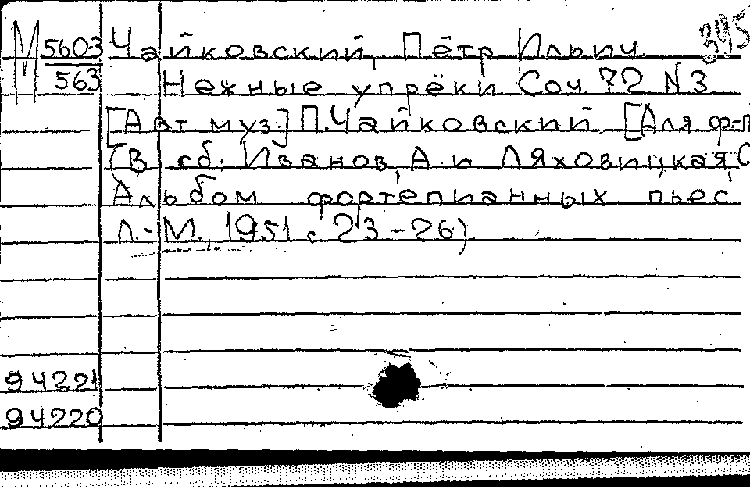 М 5603 Чайковский, Пётр Ильич 395
563 Нежные упрёки Соч 72 N3
[Авт муз.] П.Чайковский [Для ф-п
(В сб: Иванов, А. и Ляховицкая, С
Альбом фортепианных пьес
Л.-М., 1951 с 23-26)
94221
94220